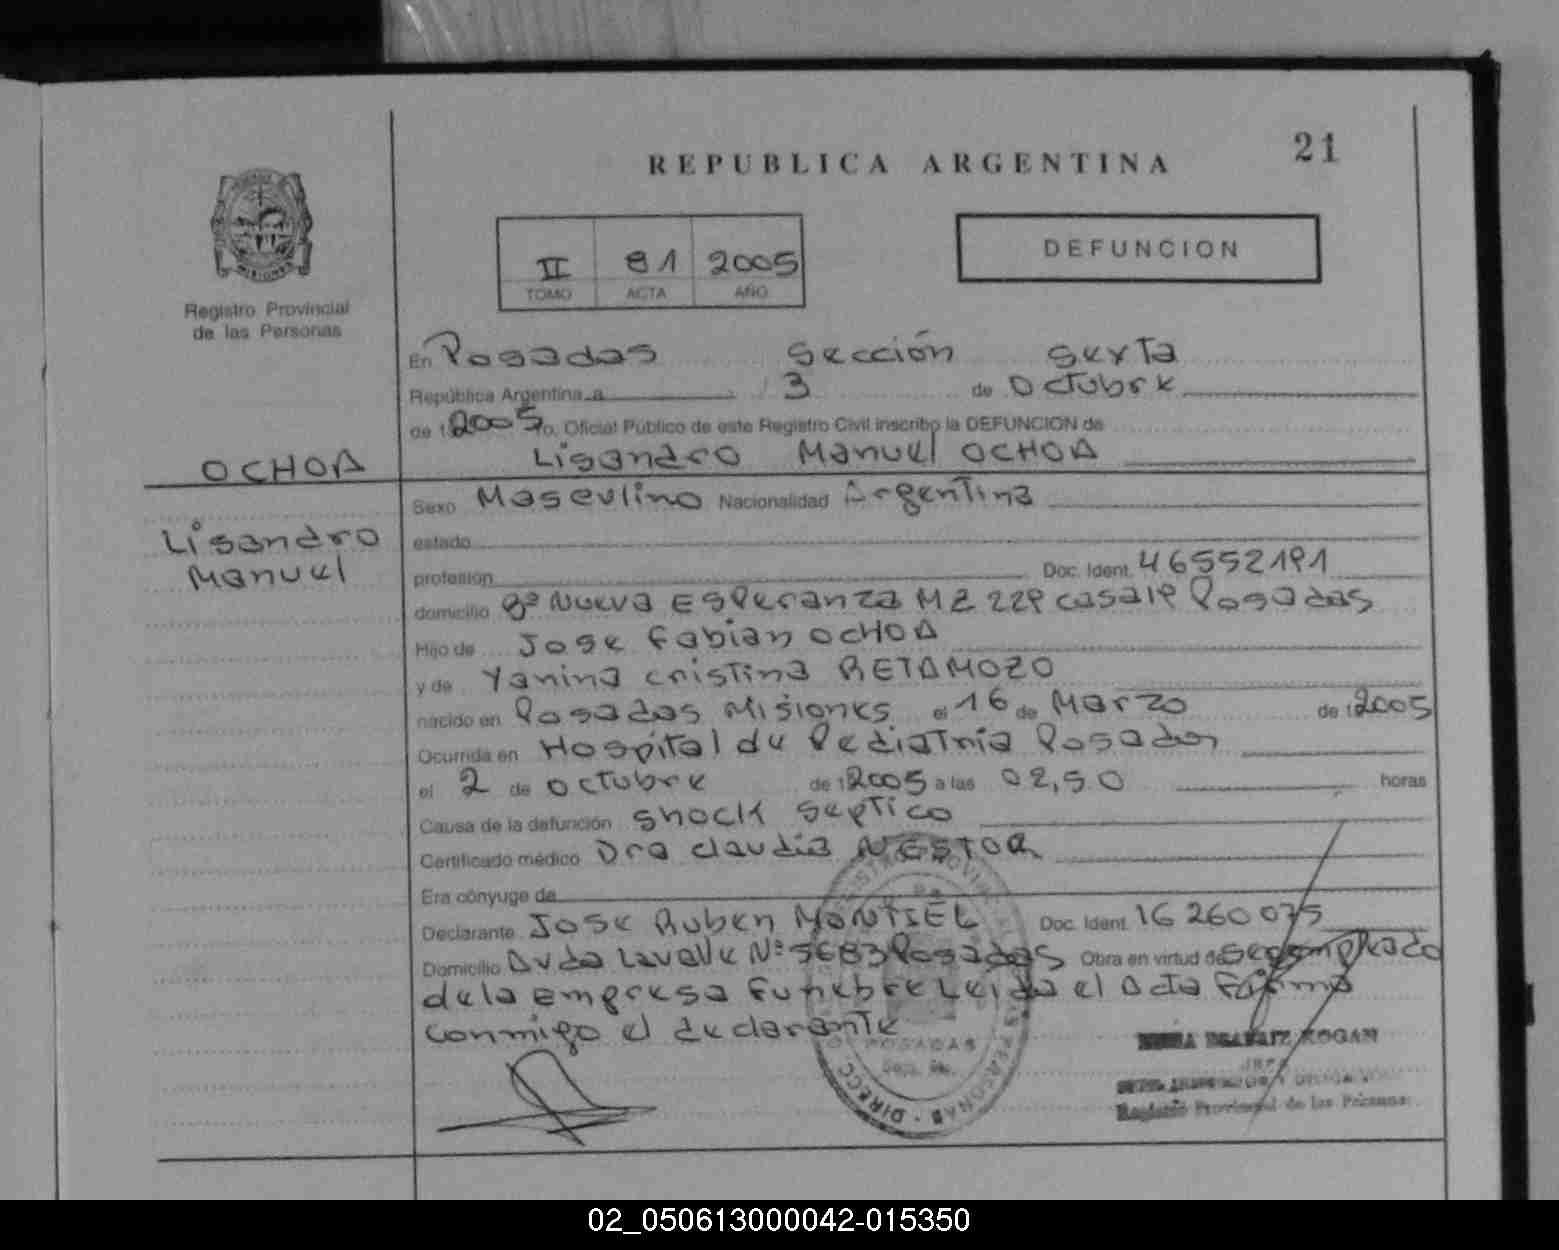 REPUBLICA ARGENTINA
21
MISIONES
Registro Provincial
de las Personas
II 81 2005
TOMO ACTA AÑO
DEFUNCION
En Posadas Sección Sexta
República Argentina a 3 de Octubre
de 1 2005 Yo, Oficial Público de este Registro Civil inscribo la DEFUNCION de
OCHOA
Lisandro Manuel OCHOA
Lisandro
Manuel
Sexo Masculino Nacionalidad Argentina
estado
profesión Doc. Ident. 46552191
domicilio Bº Nueva Esperanza MZ 229 casa 19 Posadas
Hijo de Jose Fabian OCHOA
y de Yanina Cristina RETAMOZO
nacido en Posadas Misiones el 16 de Marzo de 1 2005
Ocurrida en Hospital de Pediatria Posadas
el 2 de Octubre de 1 2005 a las 02,50 horas
Causa de la defunción Shock Septico
Certificado médico Dra Claudia NESTOR
Era cónyuge de
Declarante Jose Ruben MONTIEL Doc. Ident. 16 260 075
Domicilio Avda Lavalle Nº 5683 Posadas Obra en virtud de ser empleado
de la Empresa Funebre Leida el Acta Firma
conmigo el declarante
POSADAS
KOGAN
Registro Provincial de las Personas
02_050613000042-015350